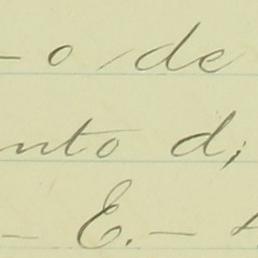 - o de
nto d;
- E. -